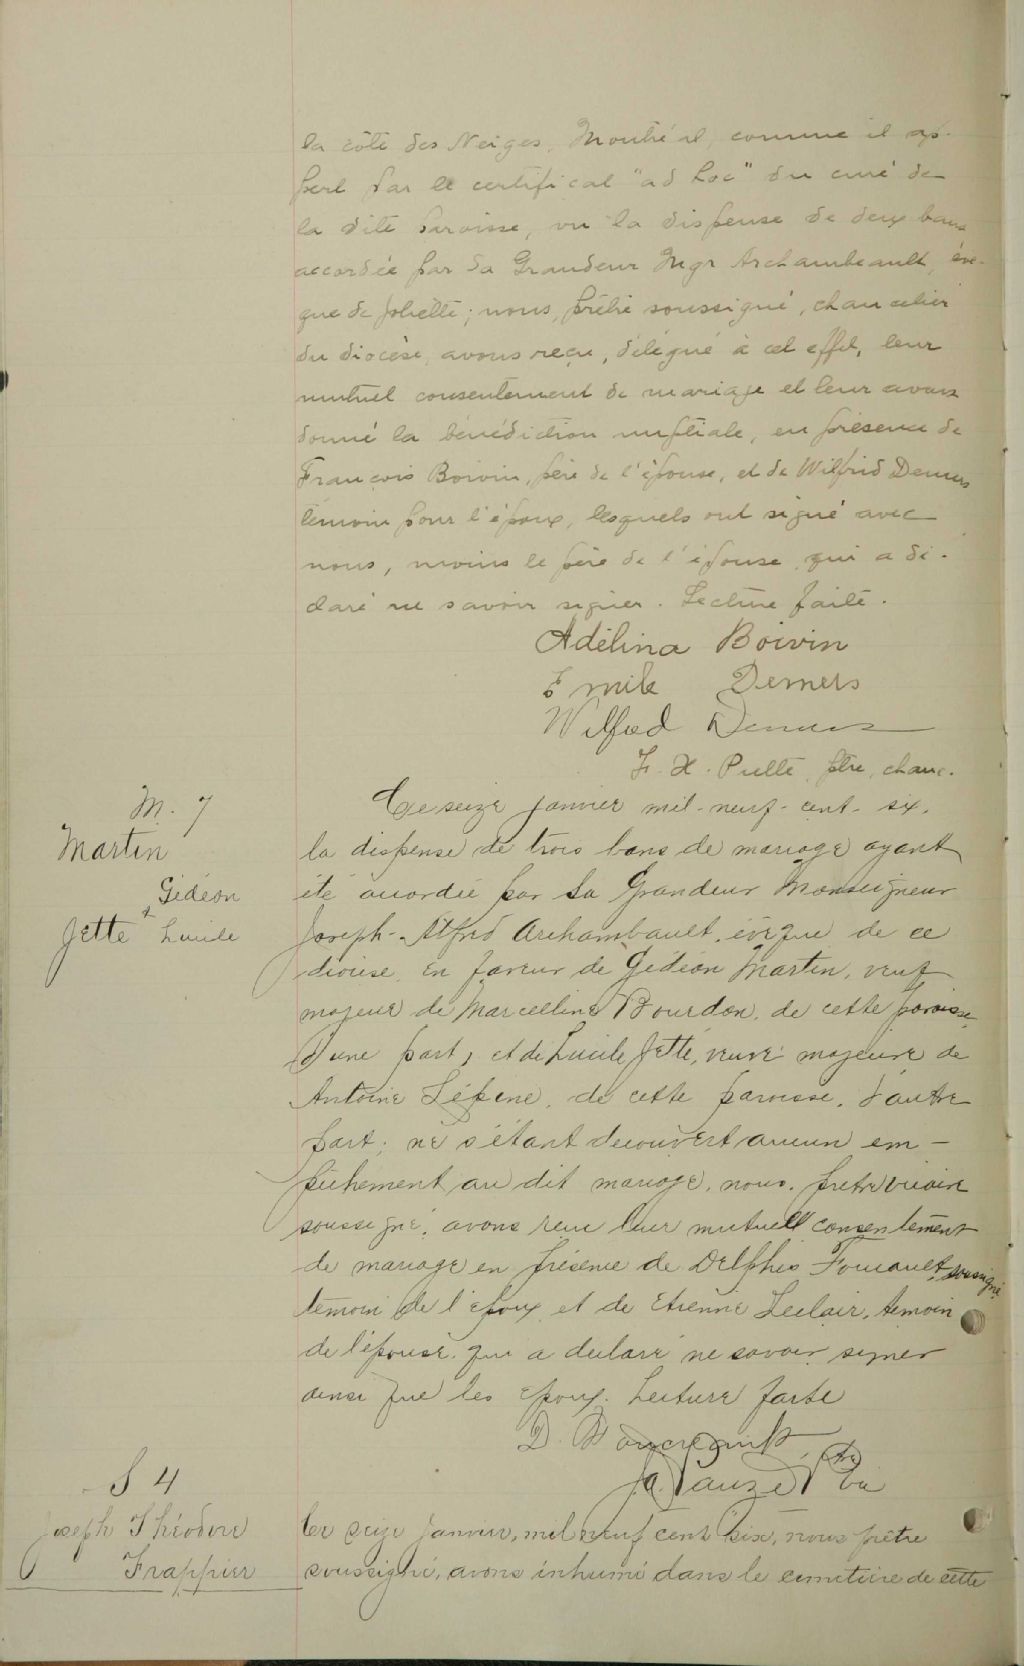 la côte des Neiges, Montréal, comme il ap-
pert par le certificat "ad hoc" du curé de
la dite paroisse, vu la dispense de deux bans
accordée par Sa Grandeur Mgr Archambeault, évê-
que de Joliette; nous, prêtre soussigné, chancelier
du diocèse, avons reçu, délégué à cet effet, leur
mutuel consentement de mariage et leur avons
donné la bénédiction nuptiale, en présence de
François Boivin, père de l'épouse, et de Wilfrid Demers
témoin pour l'époux, lesquels ont signé avec
nous, moins le père de l'épouse qui a dé-
claré ne savoir signer. Lecture faite.
Adélina Boivin
Emile Demers
Wilfred Demers
F. X. Piette, ptre, chanc.
M. 7
Martin
Gédéon
&
Jetté Lucile
Ce seize janvier mil-neuf-cent-six,
la dispense de trois bans de mariage ayant
été accordée par Sa Grandeur Monseigneur
Joseph-Alfred Archambault, évêque de ce
diocèse, en faveur de Gédéon Martin, veuf
majeur de Marcelline Bourdon, de cette paroisse,
d'une part, et de Lucile Jetté, veuve majeure de
Antoine Lépine, de cette paroisse, d'autre
part; ne s'étant découvert aucun em-
pêchement au dit mariage, nous, prêtre vicaire
soussigné, avons reçu leur mutuel consentement
de mariage en présence de Delphis Foucault, soussigné,
témoin de l'époux et de Etienne Leclair, témoin
de l'épouse, qui a déclaré ne savoir signer
ainsi que les époux. Lecture faite
D. Foucault
J. A. Pauzé Ptre Vic
S 4
Joseph Théodore
Frappier
Ce seize janvier, mil neuf cent six, nous prêtre
soussigné, avons inhumé dans le cimetière de cette